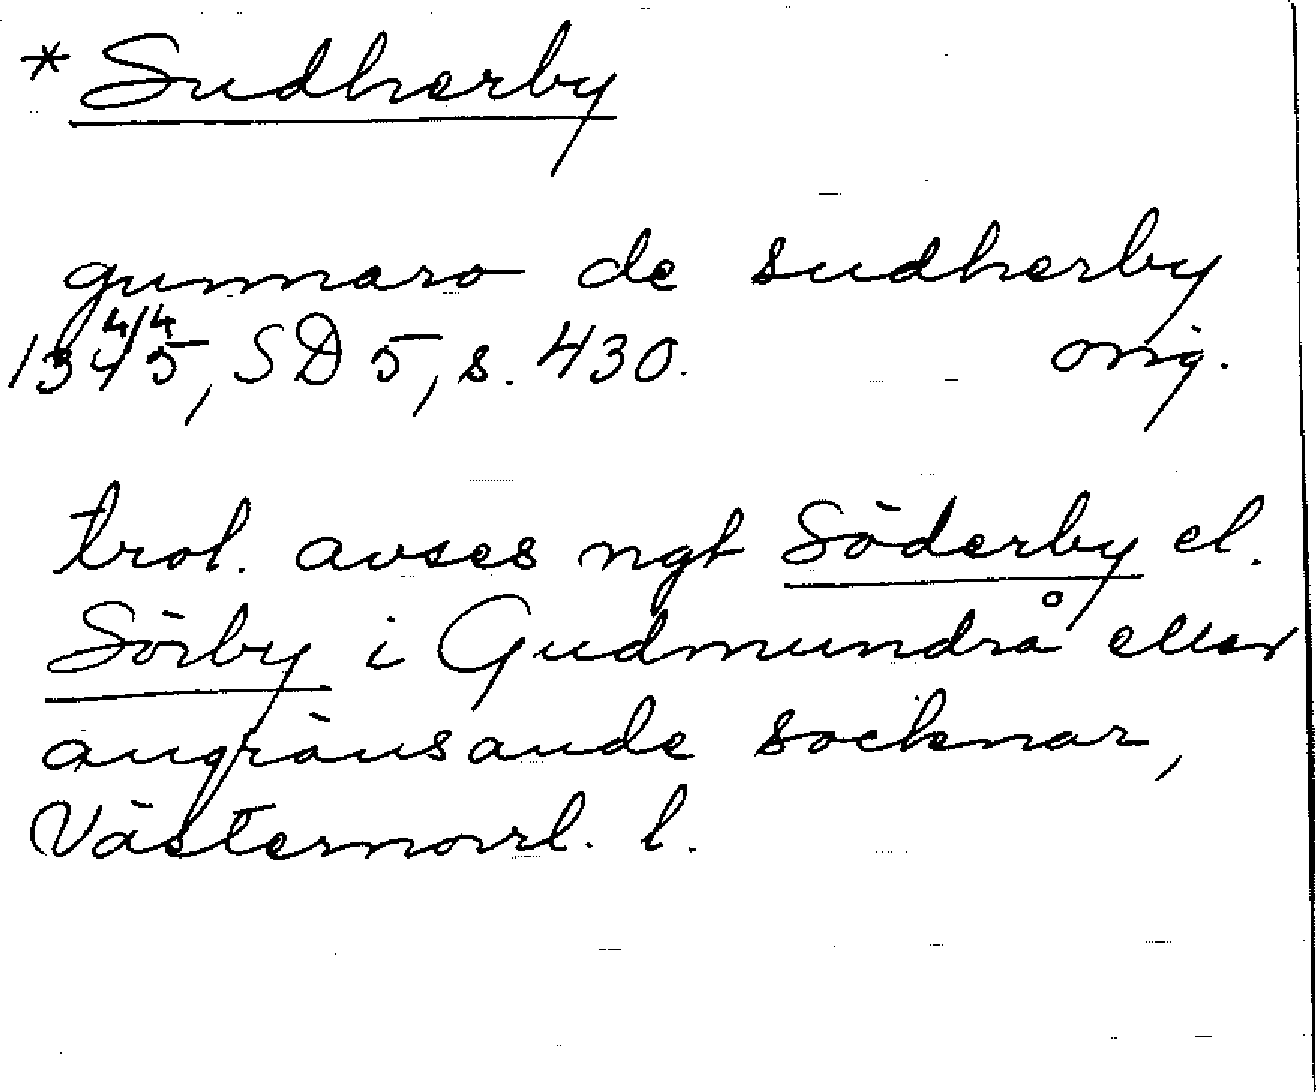 *Sudherby
gunnaro de sudherby
13 4/4 45, SD 5, s. 430. orig.
trol. avses ngt Söderby el.
Sörby i Gudmundrå eller
angränsande socknar,
Västernorrl. l.